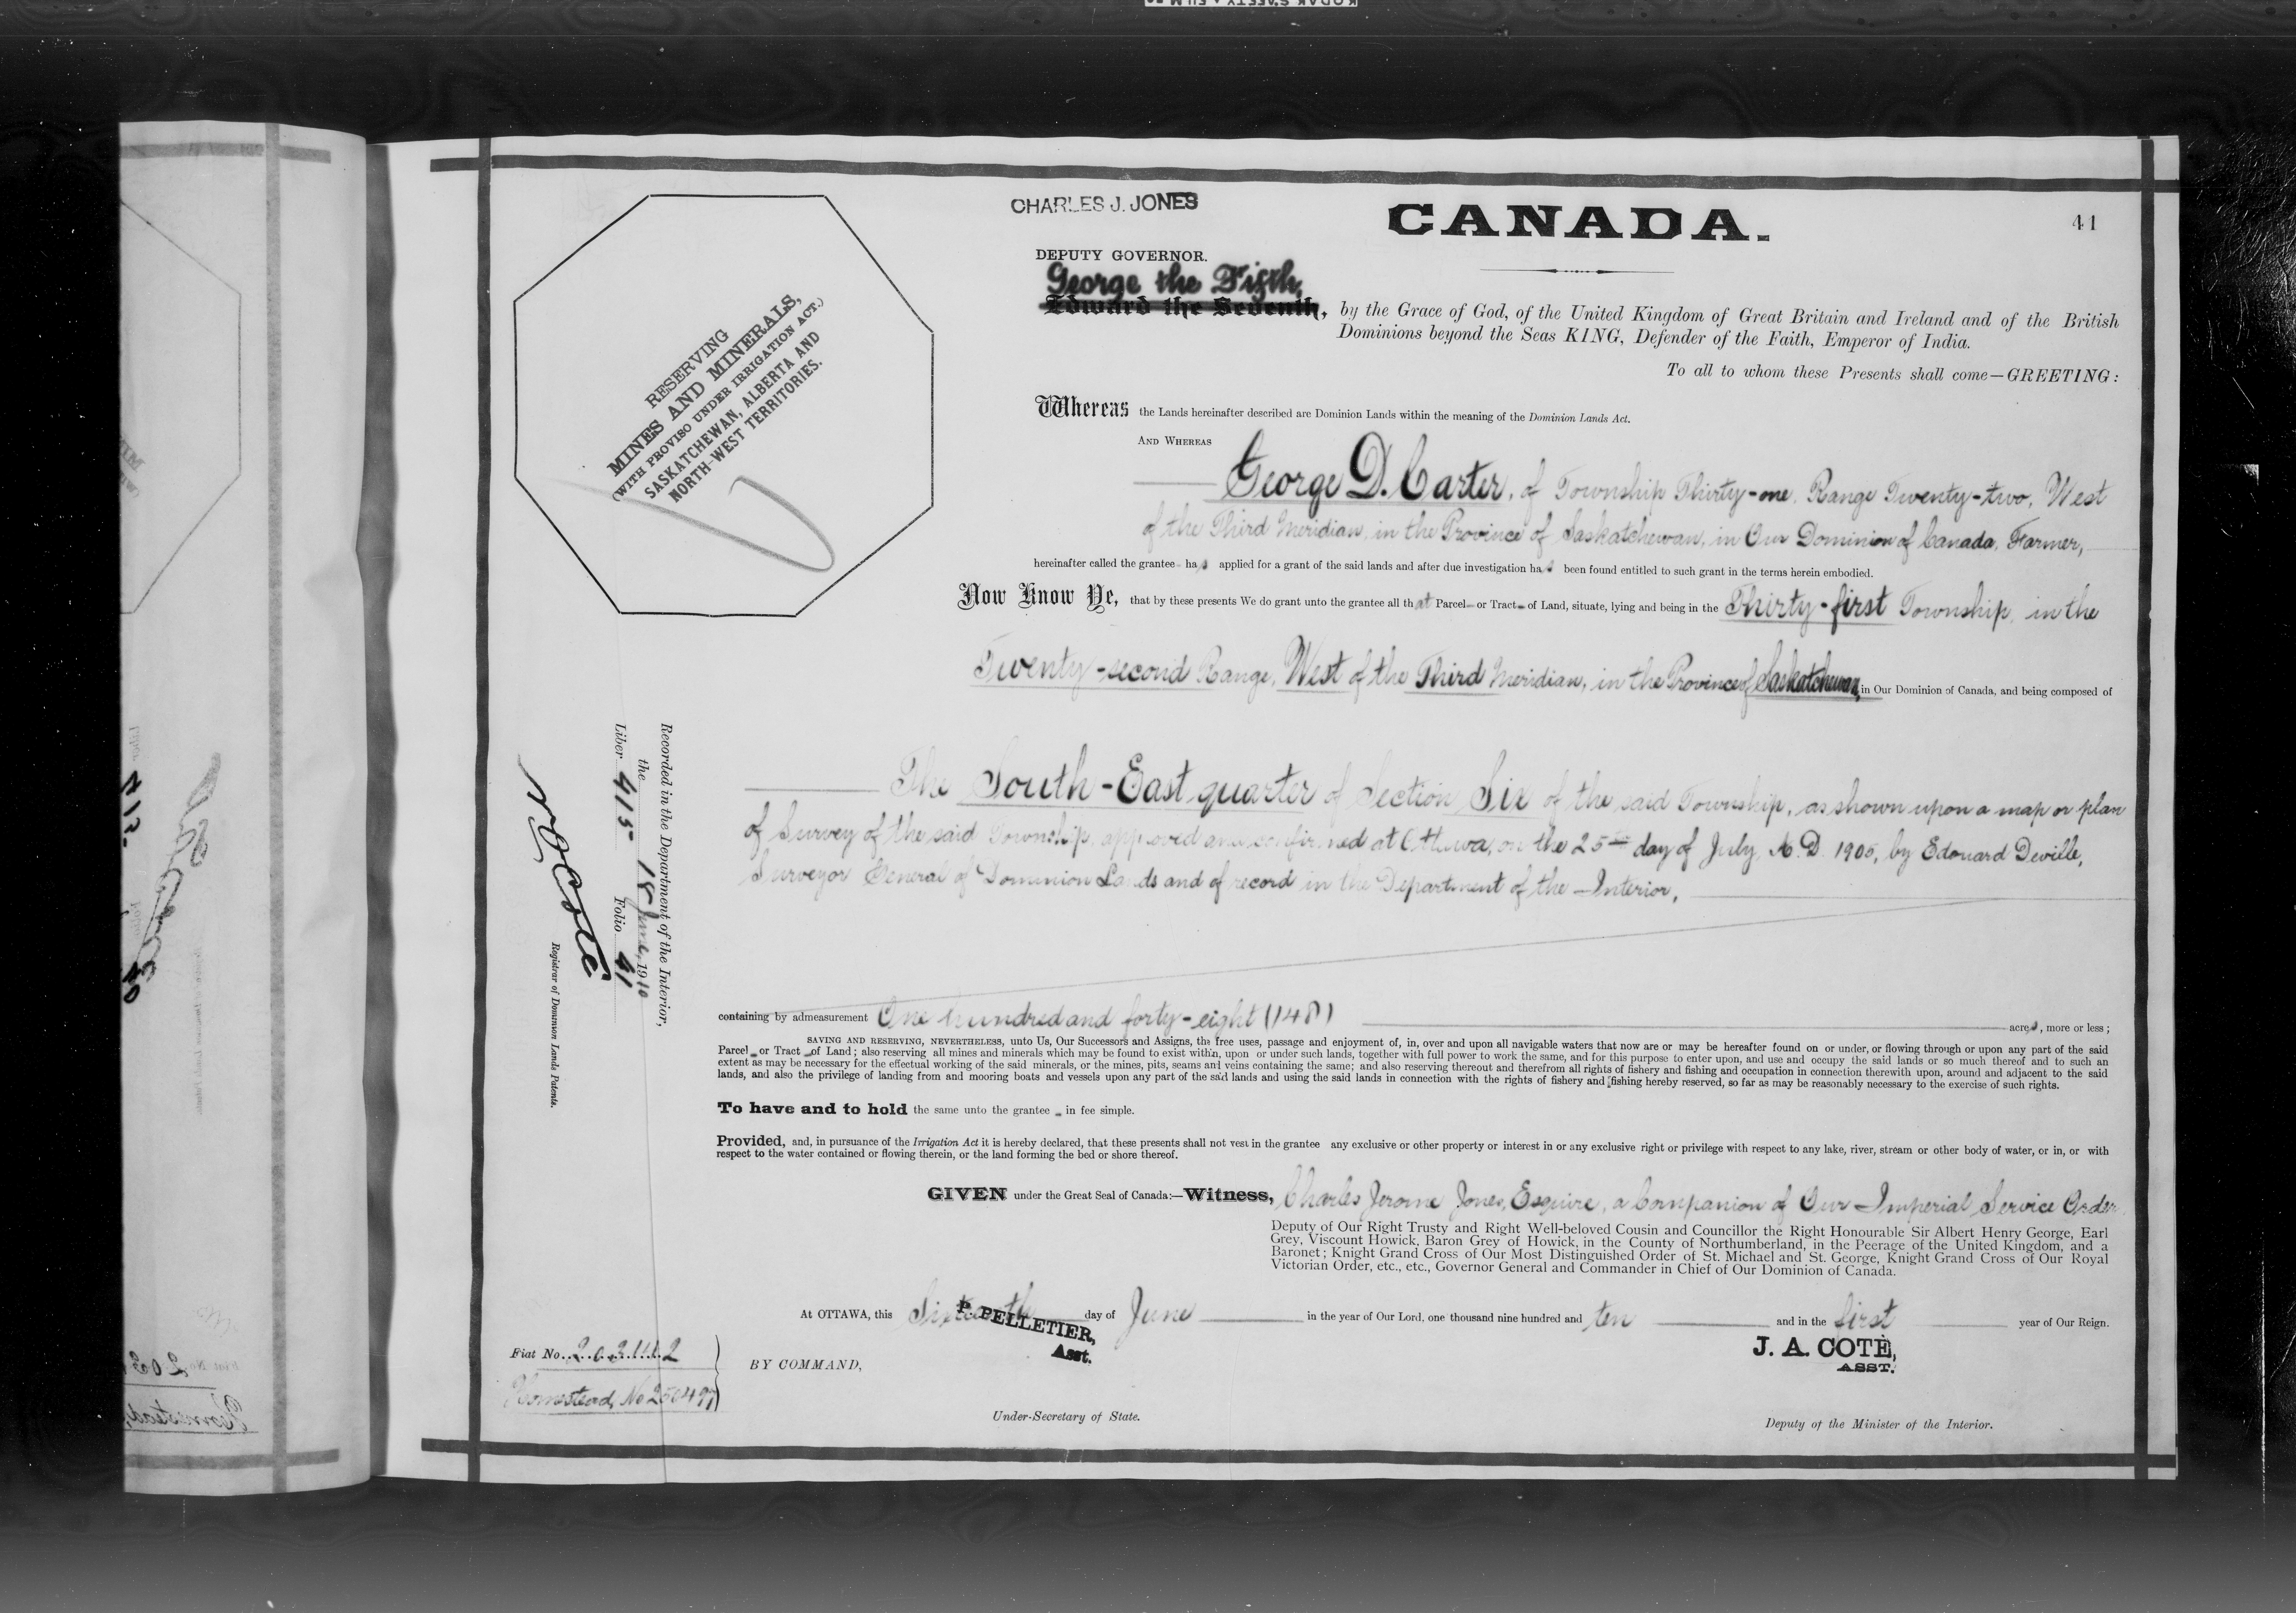 CHARLES J. JONES
CANADA.
41
DEPUTY GOVERNOR.
George the Fifth,
Edward the Seventh, by the Grace of God, of the United Kingdom of Great Britain and Ireland and of the British
Dominions beyond the Seas KING, Defender of the Faith, Emperor of India.
To all to whom these Presents shall come—GREETING:
RESERVING
MINES AND MINERALS,
(WITH PROVISO UNDER IRRIGATION ACT.)
SASKATCHEWAN, ALBERTA AND
NORTH-WEST TERRITORIES.
Whereas the Lands hereinafter described are Dominion Lands within the meaning of the Dominion Lands Act.
AND WHEREAS
George D. Carter, of Township Thirty-one, Range Twenty-two, West
of the Third Meridian, in the Province of Saskatchewan, in Our Dominion of Canada, Farmer,
hereinafter called the grantee has applied for a grant of the said lands and after due investigation has been found entitled to such grant in the terms herein embodied.
Now Know Ye, that by these presents We do grant unto the grantee all that Parcel or Tract of Land, situate, lying and being in the Thirty-first Township, in the
Twenty-second Range, West of the Third Meridian, in the Province of Saskatchewan, in Our Dominion of Canada, and being composed of
The South-East quarter of Section Six of the said Township, as shown upon a map or plan
of Survey of the said Township approved and confirmed at Ottawa, on the 25th day of July, A.D. 1905, by Edouard Deville,
Surveyor General of Dominion Lands and of record in the Department of the Interior,
containing by admeasurement One hundred and forty-eight (148) acres, more or less;
SAVING AND RESERVING, NEVERTHELESS, unto Us, Our Successors and Assigns, the free uses, passage and enjoyment of, in, over and upon all navigable waters that now are or may be hereafter found on or under, or flowing through or upon any part of the said
Parcel or Tract of Land; also reserving all mines and minerals which may be found to exist within, upon or under such lands, together with full power to work the same, and for this purpose to enter upon, and use and occupy the said lands or so much thereof and to such an
extent as may be necessary for the effectual working of the said minerals, or the mines, pits, seams and veins containing the same; and also reserving thereout and therefrom all rights of fishery and fishing and occupation in connection therewith upon, around and adjacent to the said
lands, and also the privilege of landing from and mooring boats and vessels upon any part of the said lands and using the said lands in connection with the rights of fishery and fishing hereby reserved, so far as may be reasonably necessary to the exercise of such rights.
To have and to hold the same unto the grantee in fee simple.
Provided, and, in pursuance of the Irrigation Act it is hereby declared, that these presents shall not vest in the grantee any exclusive or other property or interest in or any exclusive right or privilege with respect to any lake, river, stream or other body of water, or in, or with
respect to the water contained or flowing therein, or the land forming the bed or shore thereof.
GIVEN under the Great Seal of Canada:—Witness, Charles Jerome Jones, Esquire, a Companion of Our Imperial Service Order
Deputy of Our Right Trusty and Right Well-beloved Cousin and Councillor the Right Honourable Sir Albert Henry George, Earl
Grey, Viscount Howick, Baron Grey of Howick, in the County of Northumberland, in the Peerage of the United Kingdom, and a
Baronet; Knight Grand Cross of Our Most Distinguished Order of St. Michael and St. George, Knight Grand Cross of Our Royal
Victorian Order, etc., etc., Governor General and Commander in Chief of Our Dominion of Canada.
At OTTAWA, this Sixteenth day of June in the year of Our Lord, one thousand nine hundred and ten and in the first year of Our Reign.
P. PELLETIER,
Asst.
J. A. COTÉ,
ASST.
BY COMMAND,
Under-Secretary of State.
Deputy of the Minister of the Interior.
Recorded in the Department of the Interior,
the 18 June, 1910
Liber 415 Folio 41
N O Coté
Registrar of Dominion Lands Patents.
Fiat No.
Homestead, No 250497